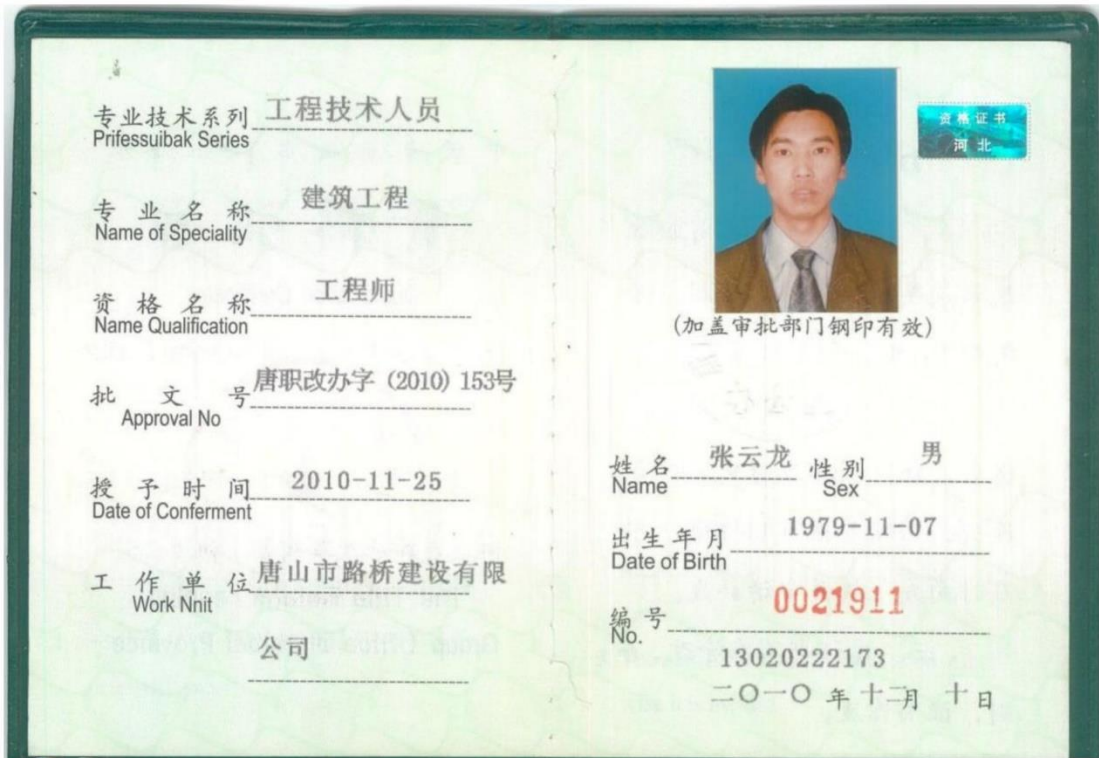 专业技术系列 工程技术人员
Prifessuibak Series
专业名称 建筑工程
Name of Speciality
资格名称 工程师
Name Qualification
批文号 唐职改办字 (2010) 153号
Approval No
授予时间 2010-11-25
Date of Conferment
工作单位 唐山市路桥建设有限
Work Nnit
公司
资格证书
河北
(加盖审批部门钢印有效)
姓名 张云龙 性别 男
Name Sex
出生年月 1979-11-07
Date of Birth
编号 0021911
No.
13020222173
二〇一〇 年 十二月 十日